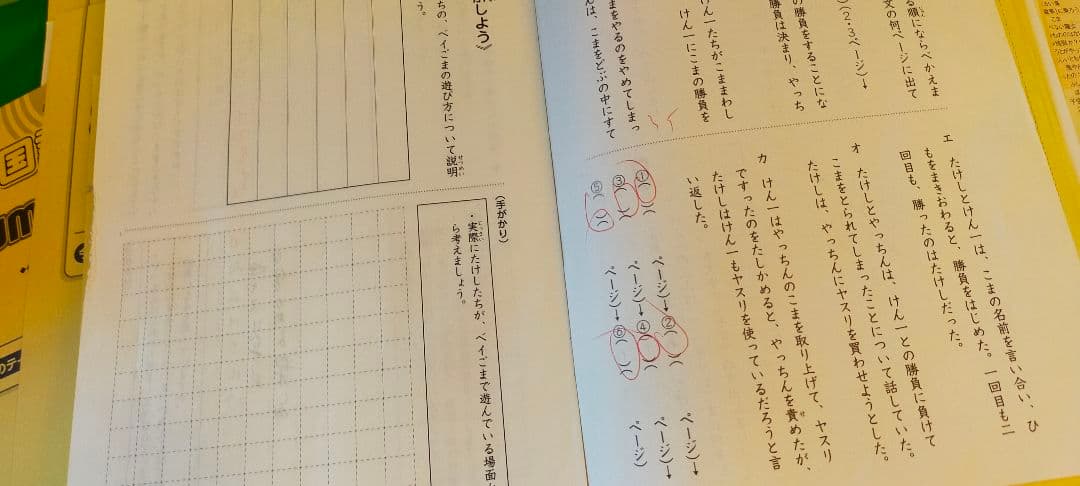 る順にならべかえま
文の何ページに出て
(2・3ページ)→
の勝負をすることにな
勝負は決まり、やっち
けん一たちがこままわし
けん一にこまの勝負を
まをやるのをやめてしまっ
んは、こまをどぶの中にすて
エ たけしとけん一は、こまの名前を言い合い、ひ
もをまきおわると、勝負をはじめた。一回目も二
回目も、勝ったのはたけしだった。
オ たけしとやっちんは、けん一との勝負に負けて
こまをとられてしまったことについて話していた。
たけしは、やっちんにヤスリを買わせようとした。
カ けん一はやっちんのこまを取り上げて、ヤスリ
ですったのをたしかめると、やっちんを責めたが、
たけしはけん一もヤスリを使っているだろうと言
い返した。
①( )( ページ)→②( )( ページ)→
③( )( ページ)→④( )( ページ)→
⑤( )( ページ)→⑥( )( ページ)
しよう》
ちの、ベイごまの遊び方について説明
う。
(手がかり)
・実際にたけしたちが、ベイごまで遊んでいる場面
ら考えましょう。
国